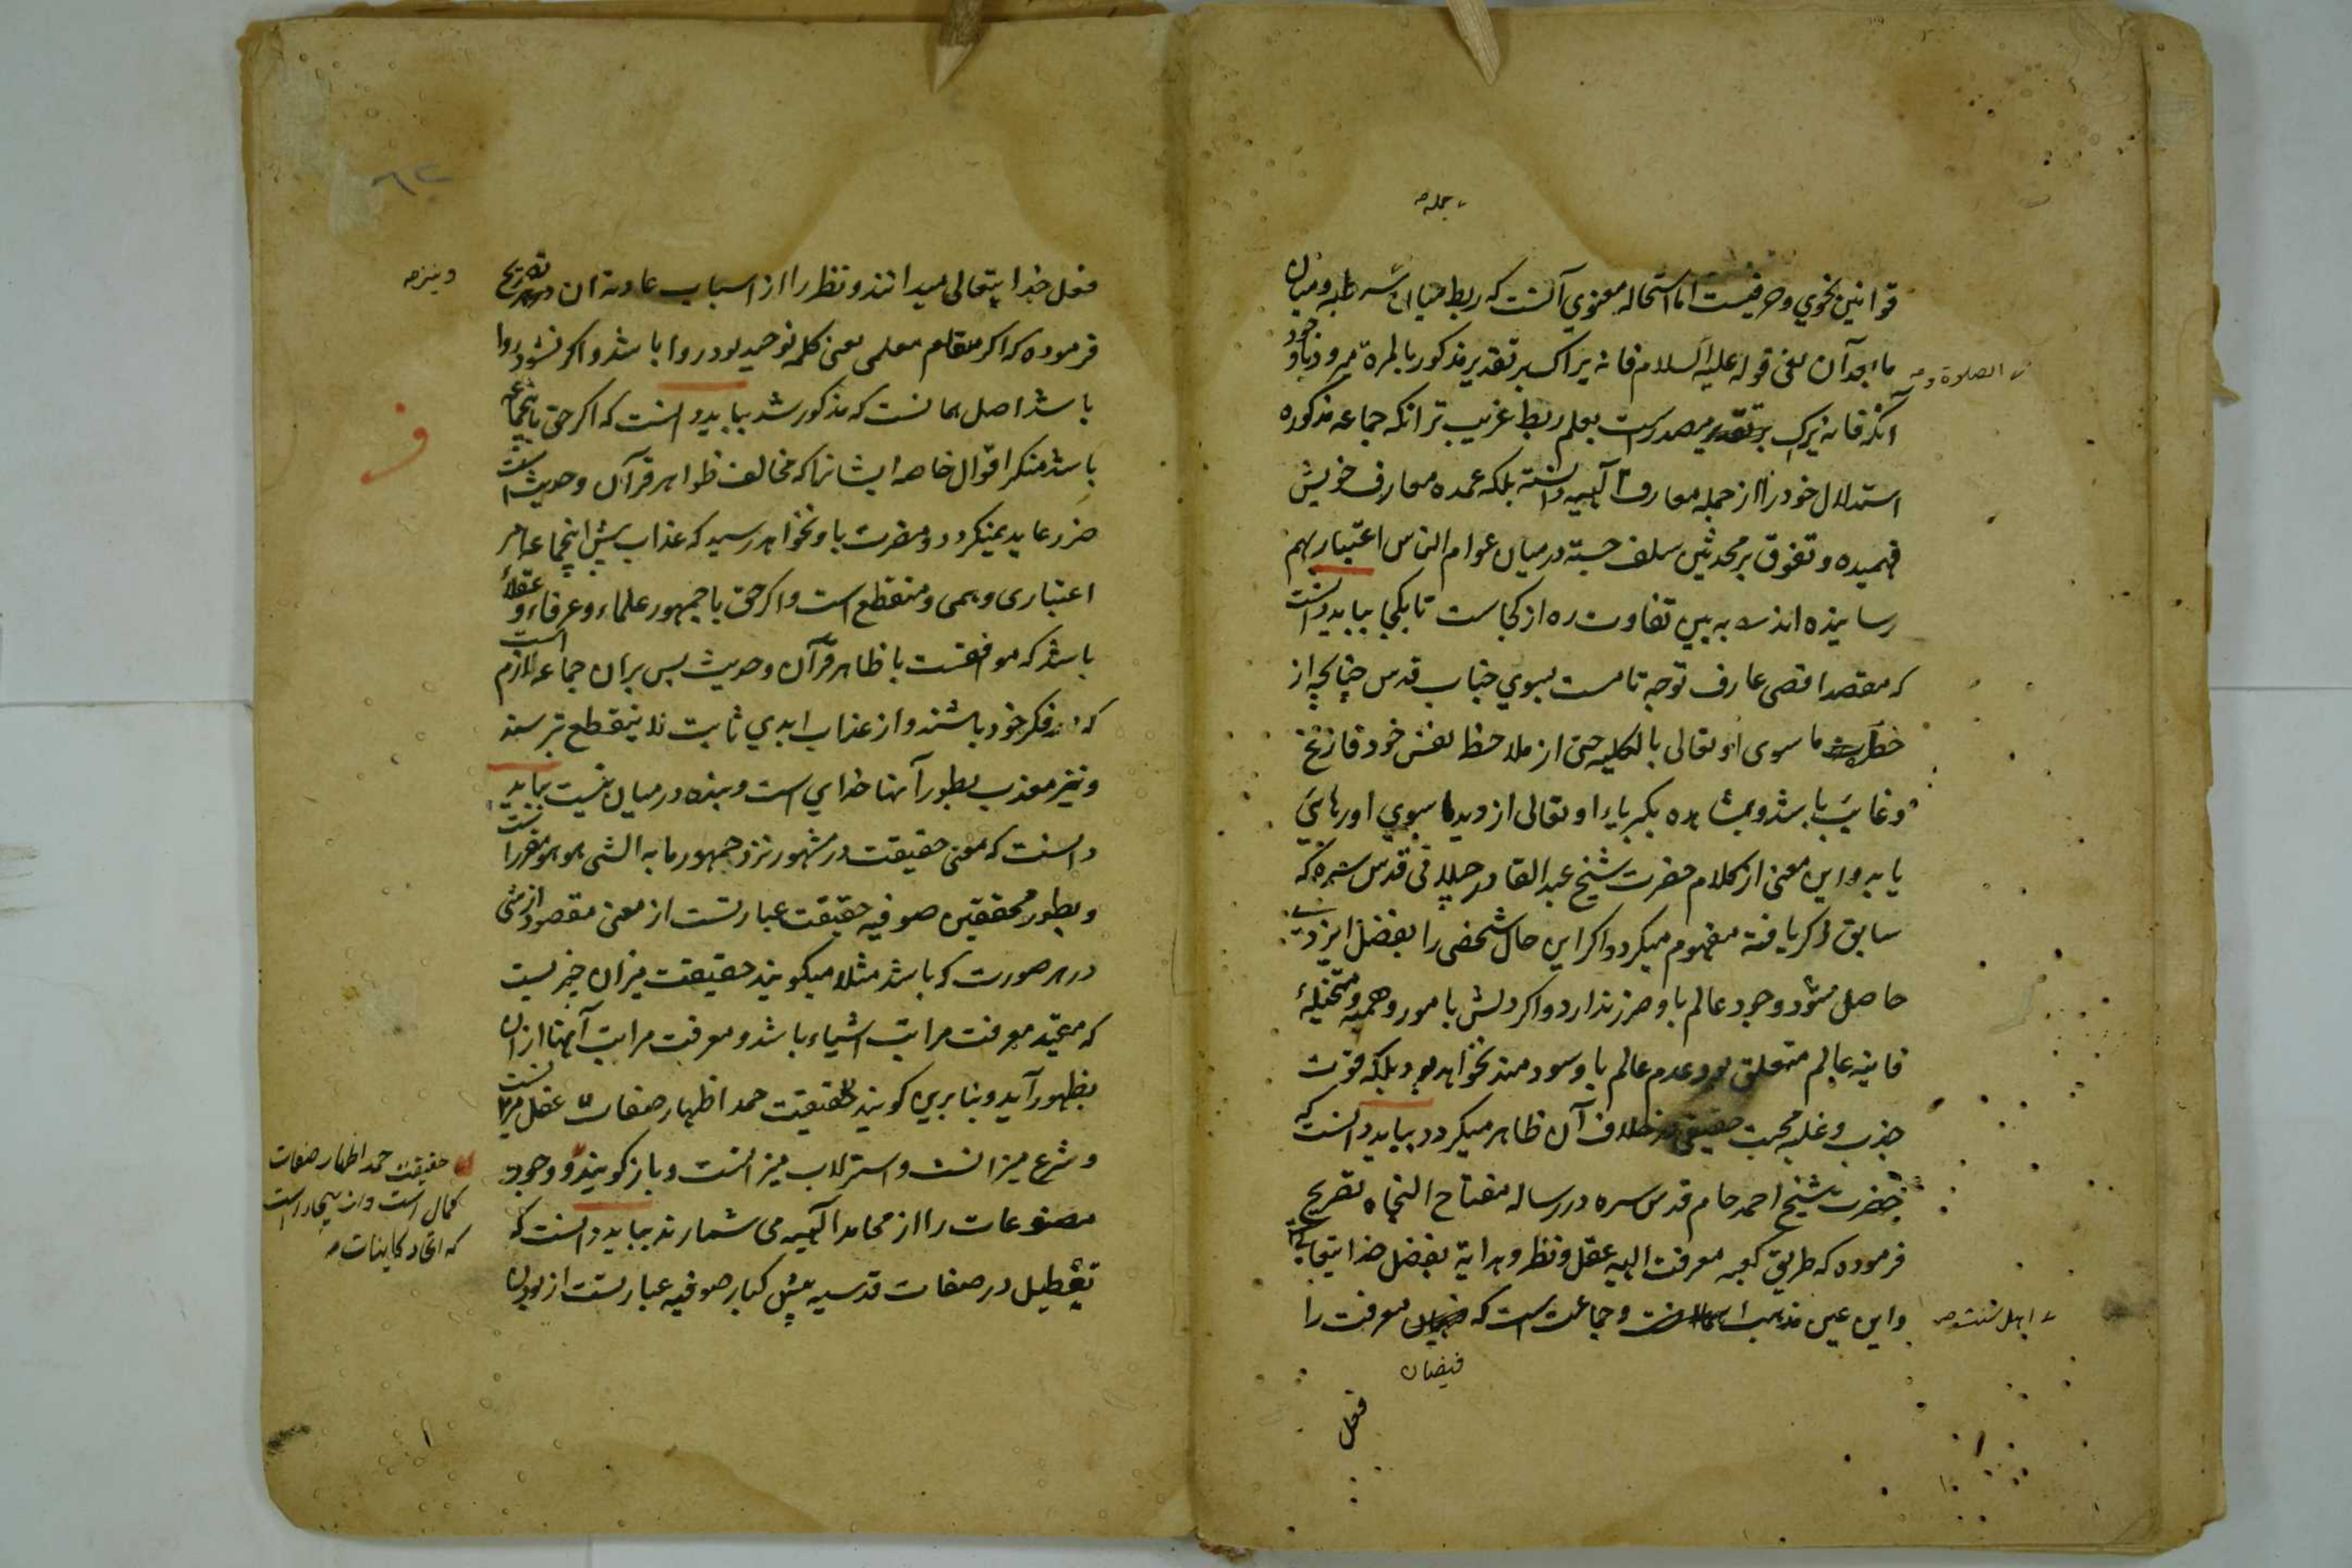 جمله صح
قوانین نحوي و صرفیست اما استحاله معنوي آنست که ربط میان شرطیه و میان
ما بعد آن یعنی قوله علیه السلام فانه یراک بر تقدیر مذکور بالمره میرود و با وجود
الصلاة و صح
آنکه فانه یراک بر تقدیر مصدرست بعلم ربط غریب تر انکه جماعه مذکوره
استدلال خود را از جمله معارف آلهیه دانسته بلکه عمده معارف خویش
فهمیده و تفوق بر محدثین سلف جسته در میان عوام الناس اعتبار بهم
رسانیده اند به بین تفاوت ره از کجاست تا بکجا بباید دانست
که مقصد اقصی عارف توجه تامست بسوي جناب قدس چنانچه از
خطرات ما سوی او تعالی بالکلیه حتی از ملاحظ نفس خود فارغ
و غایب باشد و بمشاهده کبریاء او تعالی از دیدها سوي او رهایئ
یابد و این معنی از کلام حضرت شیخ عبد القادر جیلانی قدس سره که
سابق ذکر یافته مفهوم میکردد و اکر این حال شخصی را بفضل ایزدي
حاصل شود وجود عالم باو ضرر ندارد و اکر دلش بامور وهمیه و متخیلهٔ
فانیه عالم متعلق بود عدم عالم باو سودمند نخواهد بود بلکه قوت
جذب و غلبه محبت حقیقی خلاف آن ظاهر میکردد بباید دانست که
حضرت شیخ احمد جام قدس سره در رساله مفتاح النجاه تصریح
فرموده که طریق کعبه معرفت الهیه عقل و نظر و هدایة بفضل خدایتعالی
و این عین مذهب و جماعت است که معرفت را
اهل سنت صح
فیضان
فعل
فعل خدایتعالی میدانند و نظر را از اسباب عادیه ان و تصریح
و نیز صح
فرموده که اکر مقام معلمی معنی کلمه توحید بود روا باشد و اکر نشود روا
باشد اصل همانست که مذکور شد بباید دانست که اکر حق باینجماعه
باشد منکر اقوال خاصه ایشانرا که مخالف ظواهر قرآن و حدیث است
ضرر عاید نمیکردد و مضرت باو نخواهد رسید که عذاب پیش اینجماعه امر
اعتباری وهمی و منقطع است و اکر حق با جمهور علماء و عرفاء و عقلاء
باشد که موافقست با ظاهر قرآن و حدیث پس بران جماعه لازم است
که در فکر خود باشند و از عذاب ابدي ثابت لا ینقطع بترسند
و نیز معذب بطور آنها خداي است و بنده در میان نیست بباید
دانست که معنی حقیقت در مشهور نزد جمهور ما به الشی هو هو مقررست
و بطور محققین صوفیه حقیقت عبارتست از معنی مقصود از شی
در هر صورت که باشد مثلا میکویند حقیقت میزان چیزیست
که معرفت مراتب اشیاء باشد و معرفت مراتب آنها ازان
بظهور آید و بنا برین کویند حقیقت حمد اظهار صفات عقل میزانست
و شرع میزانست و استرلاب میزانست و باز کویند و وجود
حقیقت حمد اظهار صفات
کمال است
که اتحاد کاینات صح
مصنوعات را از محامد آلهیه می شمارند بباید دانست که
تعطیل در صفات قدسیه پیش کبار صوفیه عبارتست از بودن